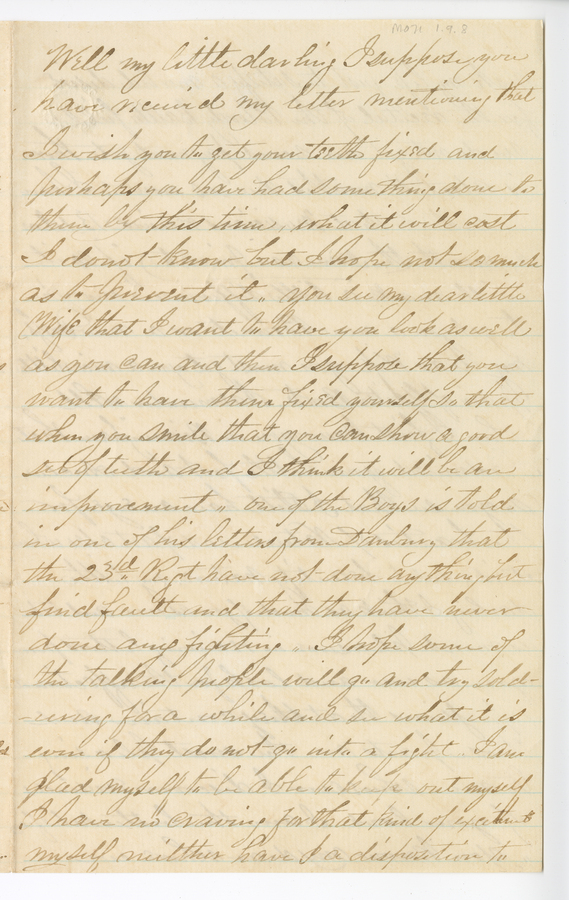 M071 1.9.8
Well my little darling I suppose you
have received my letter mentioning that
I wish you to get your teeth fixed and
perhaps you have had something done to
them by this time, what it will cost
I do not know but I hope not so much
as to prevent it,, you see my dear little
Wife that I want to have you look as well
as you can and then I suppose that you
want to have them fixed yourself so that
when you smile that you can show a good
set of teeth and I think it will be an
improvement,, one of the Boys is told
in one of his letters from Danbury that
the 23rd Regt have not done anything but
find fault and that they have never
done any fighting,, I hope some of
the talking people will go and try sold-
-iering for a while and see what it is
even if they do not go into a fight. I am
glad myself to be able to keep out myself
I have no craving for that kind of excitement
myself neither have I a disposition to